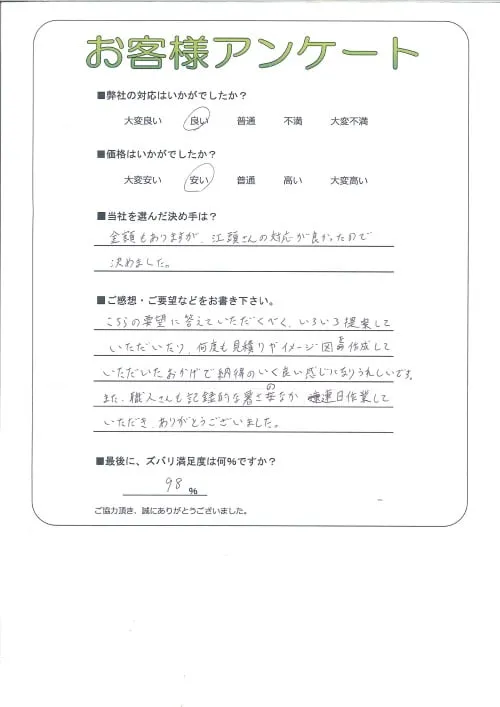 お客様アンケート
■弊社の対応はいかがでしたか?
大変良い 良い 普通 不満 大変不満
■価格はいかがでしたか?
大変安い 安い 普通 高い 大変高い
■当社を選んだ決め手は?
金額もありますが、江頭さんの対応が良かったので
決めました。
■ご感想・ご要望などをお書き下さい。
こちらの要望に答えていただくべく、いろいろ提案して
いただいたり、何度も見積りやイメージ図を作成して
いただいたおかげで納得のいく良い感じになりうれしいです。
また、職人さんも記録的な暑さのなか 連日作業して
いただき、ありがとうございました。
■最後に、ズバリ満足度は何%ですか?
98 %
ご協力頂き、誠にありがとうございました。